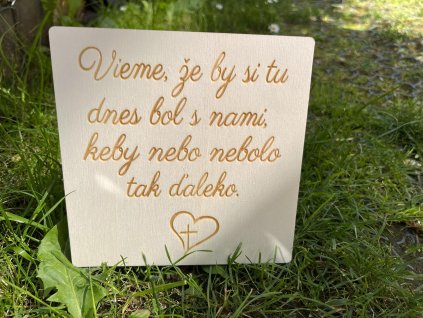 Vieme, že by si tu
dnes bol s nami,
keby nebo nebolo
tak ďaleko.